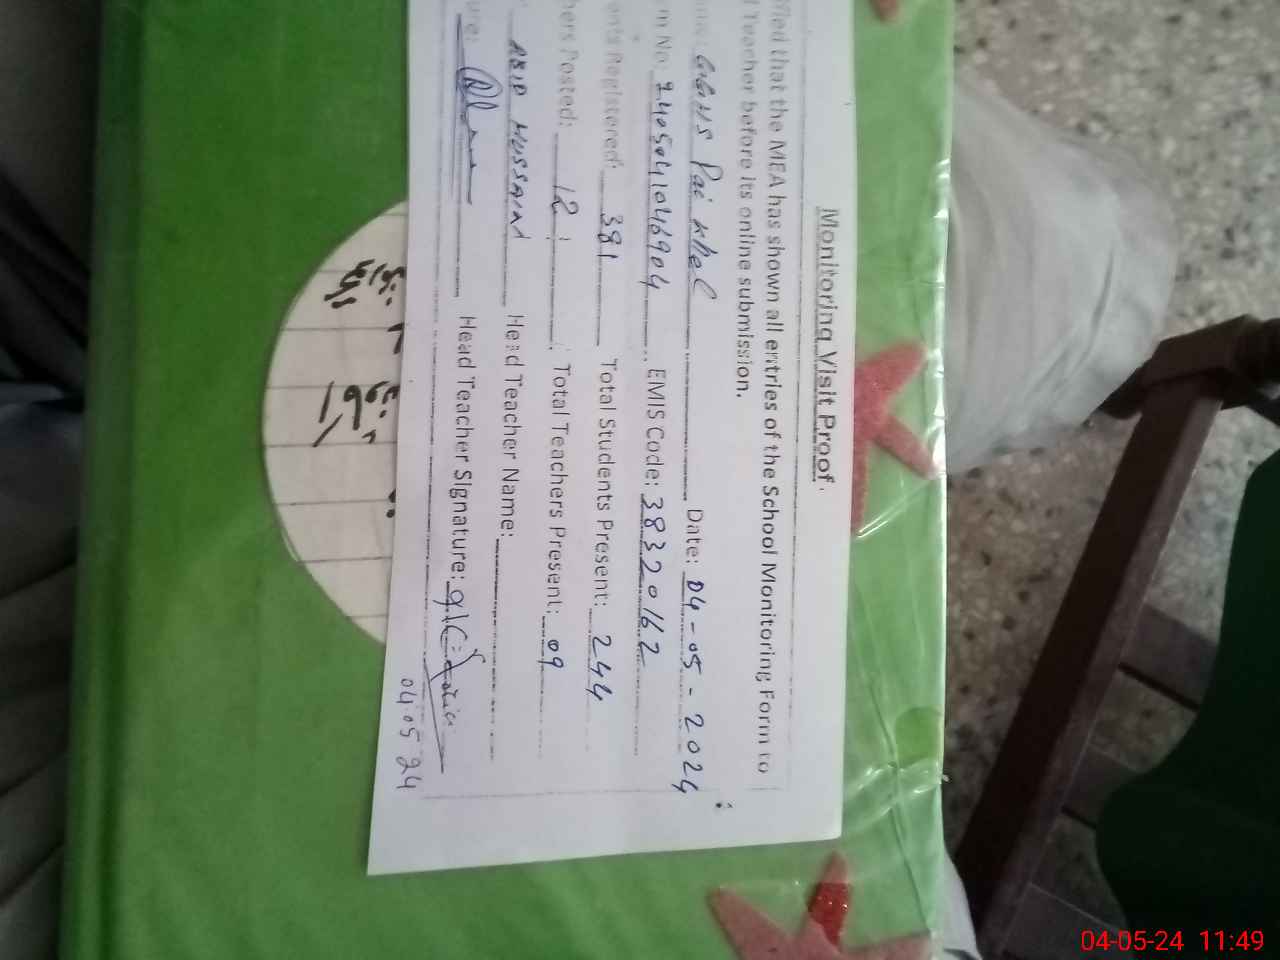 Monitoring Visit Proof
fied that the MEA has shown all entries of the School Monitoring Form to
d Teacher before its online submission.
GGHS Pai Khel Date: 04-05-2024
m No. 2405041046904 EMIS Code: 38320162
ents Registered: 381 Total Students Present: 244
hers Posted: 12 Total Teachers Present: 09
ABID HUSSAIN Head Teacher Name:
ure: Head Teacher Signature:
04 05 24
04-05-24 11:49